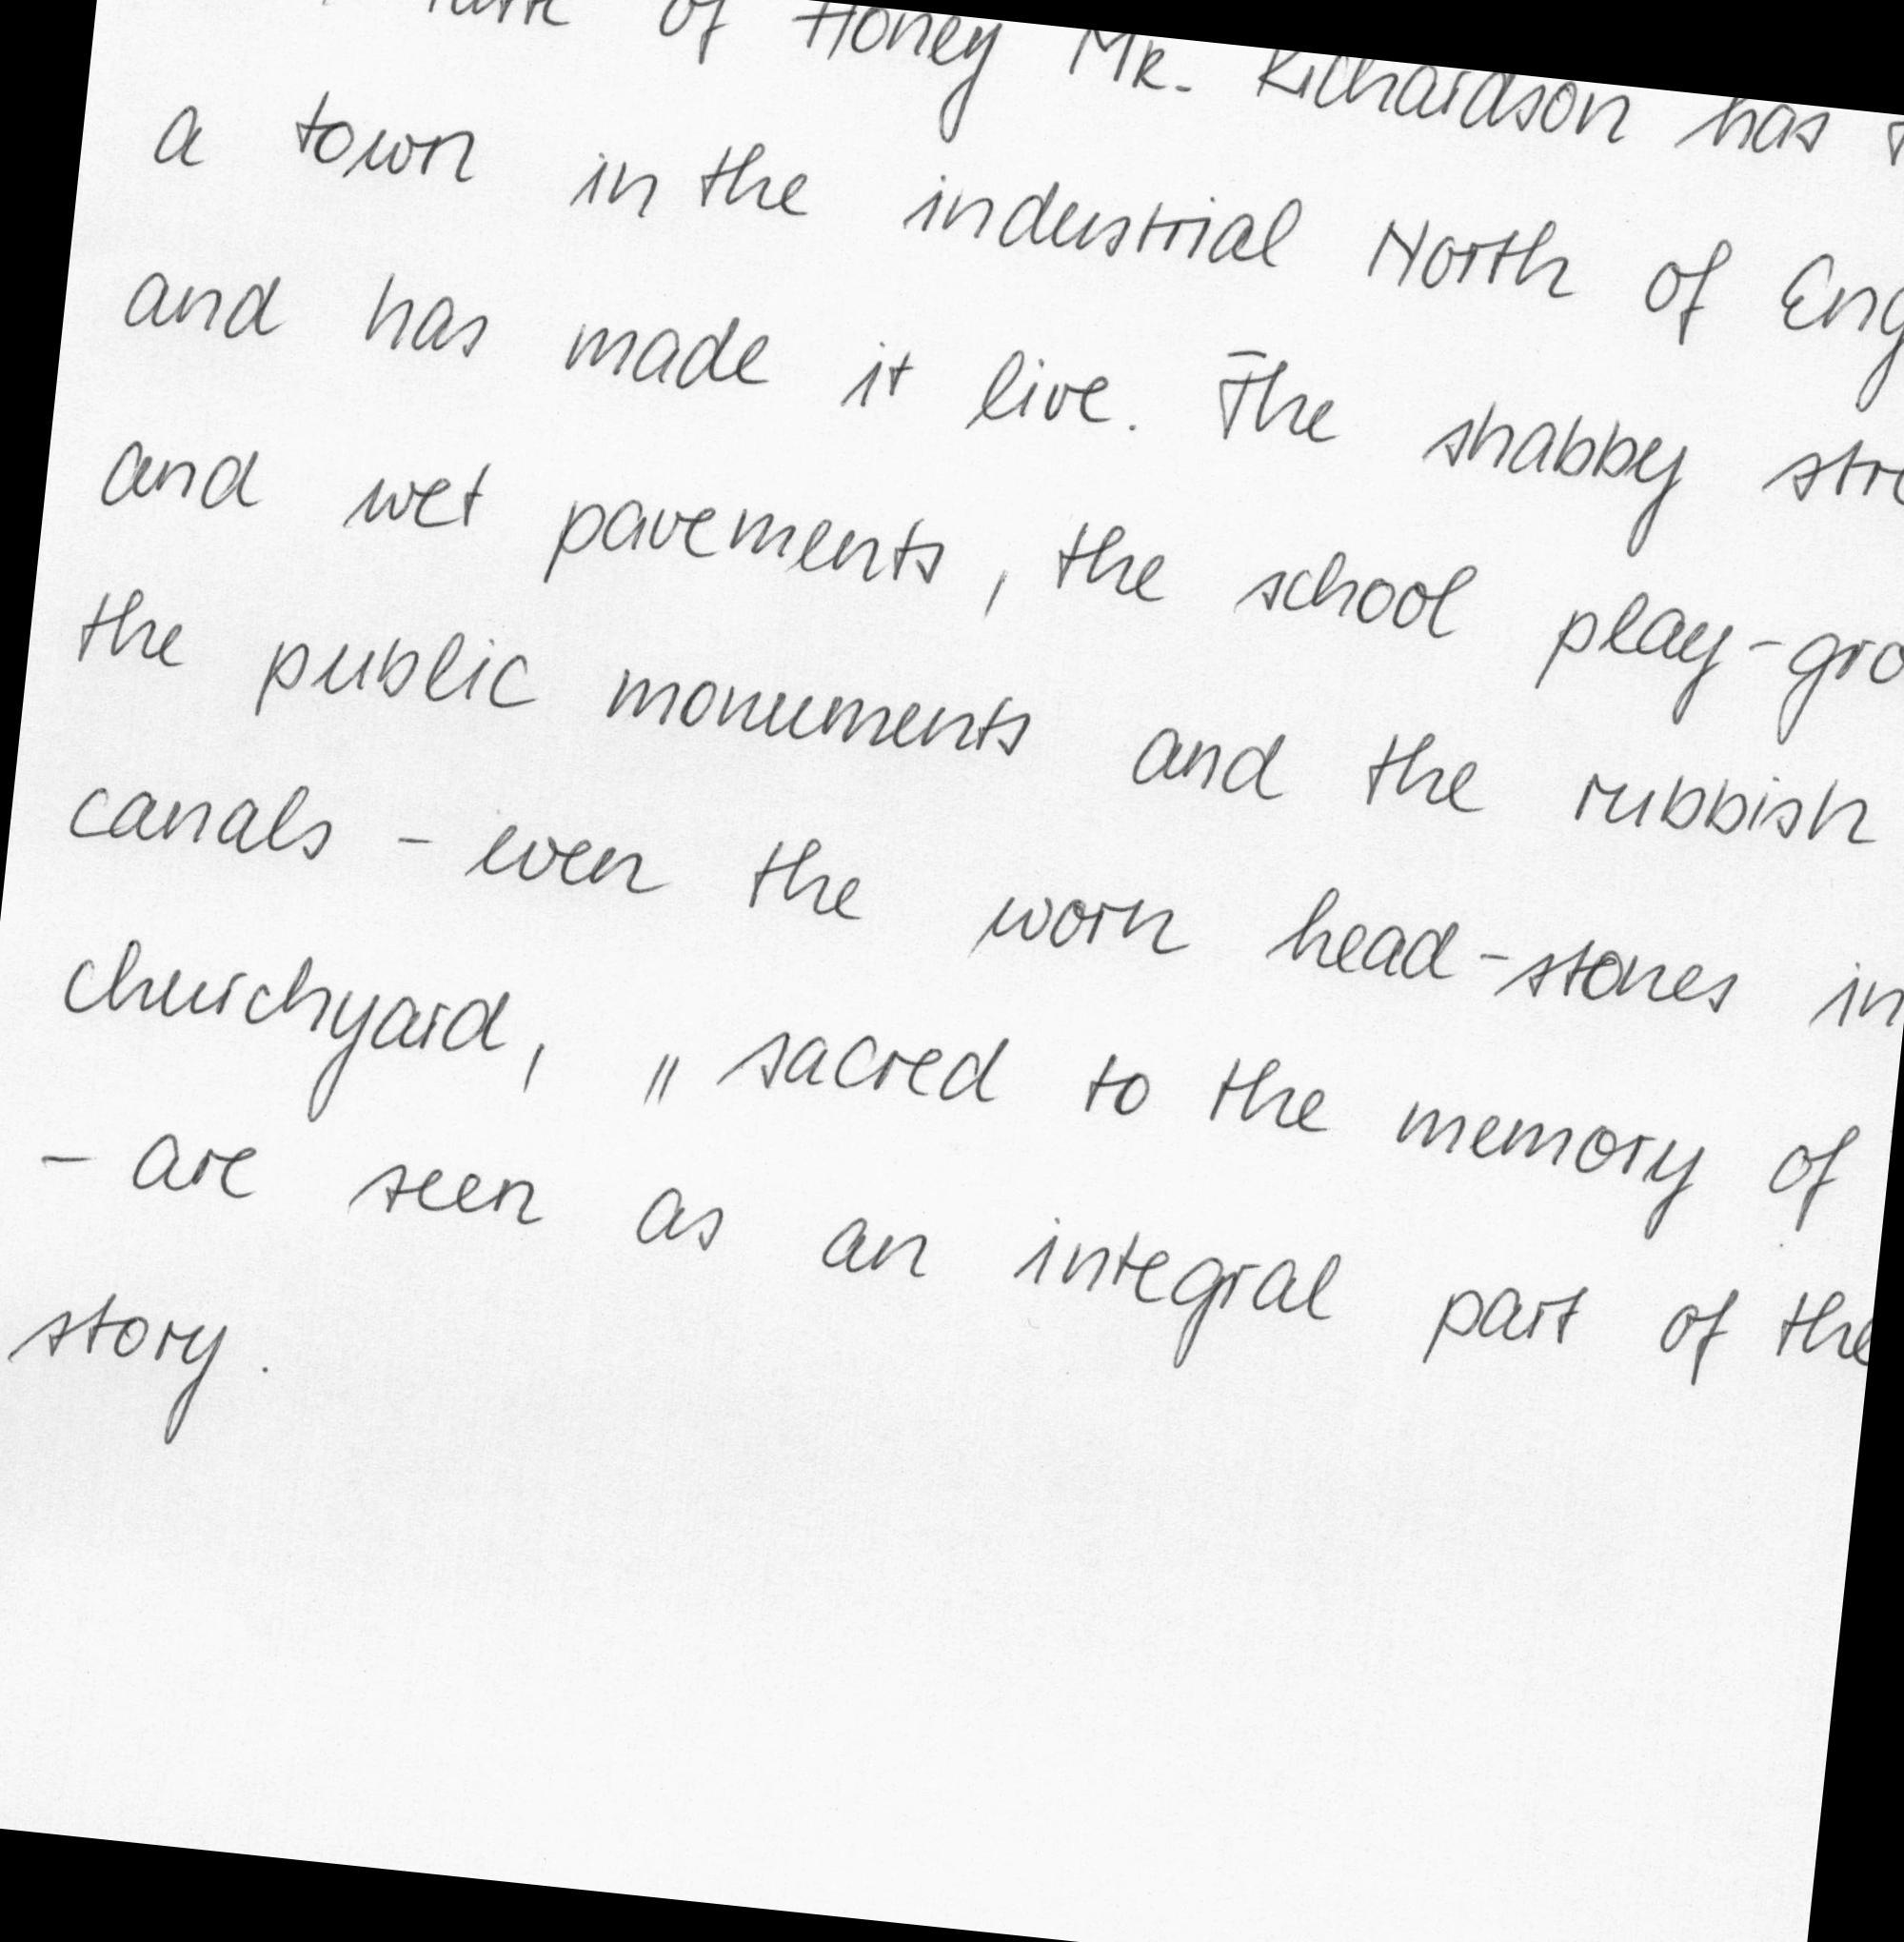 of Honey Mr. Richardson has
a town in the industrial North of
and has made it live. The shabby
and wet pavements, the school
the public monuments and the rubbish
canals - even the worn head-stones in
churchyard, "sacred to the memory of
- are seen as an integral part of the
story.